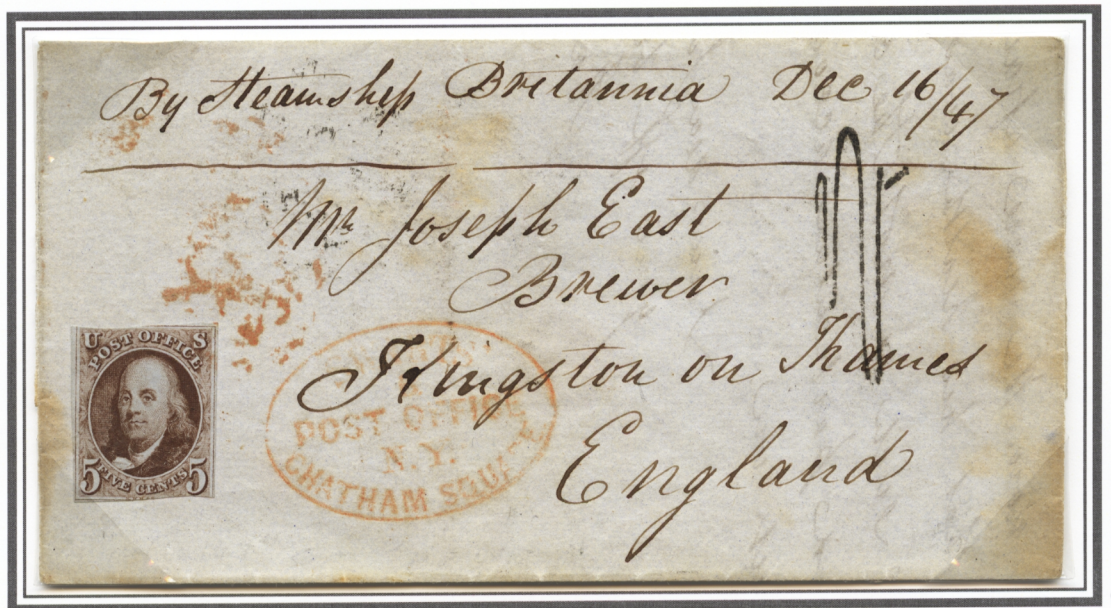 By Steamship Britannia Dec 16/47
Mr Joseph East
Brewer
Kingston on Thames
England
U S
POST OFFICE
5 FIVE CENTS 5
POST OFFICE
N.Y.
CHATHAM SQUARE